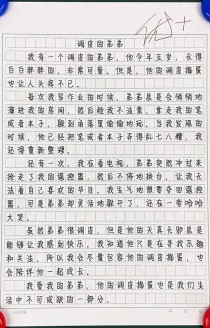 调皮的弟弟
我有一个调皮的弟弟，他今年五岁，长得
白白胖胖的，非常可爱。但是，他的调皮捣蛋
也让人头疼不已。
每次我写作业的时候，弟弟总是会悄悄地
溜进我的房间，然后趁我不注意，拿走我的笔
或者本子，躲到角落里偷偷地玩。当我发现的
时候，他已经把笔或者本子弄得乱七八糟，我
还得重新整理。
还有一次，我在看电视，弟弟突然冲过来
抢走了我的遥控器，然后不停地换台，让我无
法看自己喜欢的节目。我生气地想要夺回遥控
器，可是弟弟却灵活地躲开了，还在一旁哈哈
大笑。
虽然弟弟很调皮，但是他的天真无邪总是
能够让我感到快乐。我知道他只是在寻找乐趣
和关注，所以我会尽量包容他的调皮捣蛋，也
会陪伴他一起成长。
我爱我的弟弟，他的调皮捣蛋也是我们生
活中不可或缺的一部分。